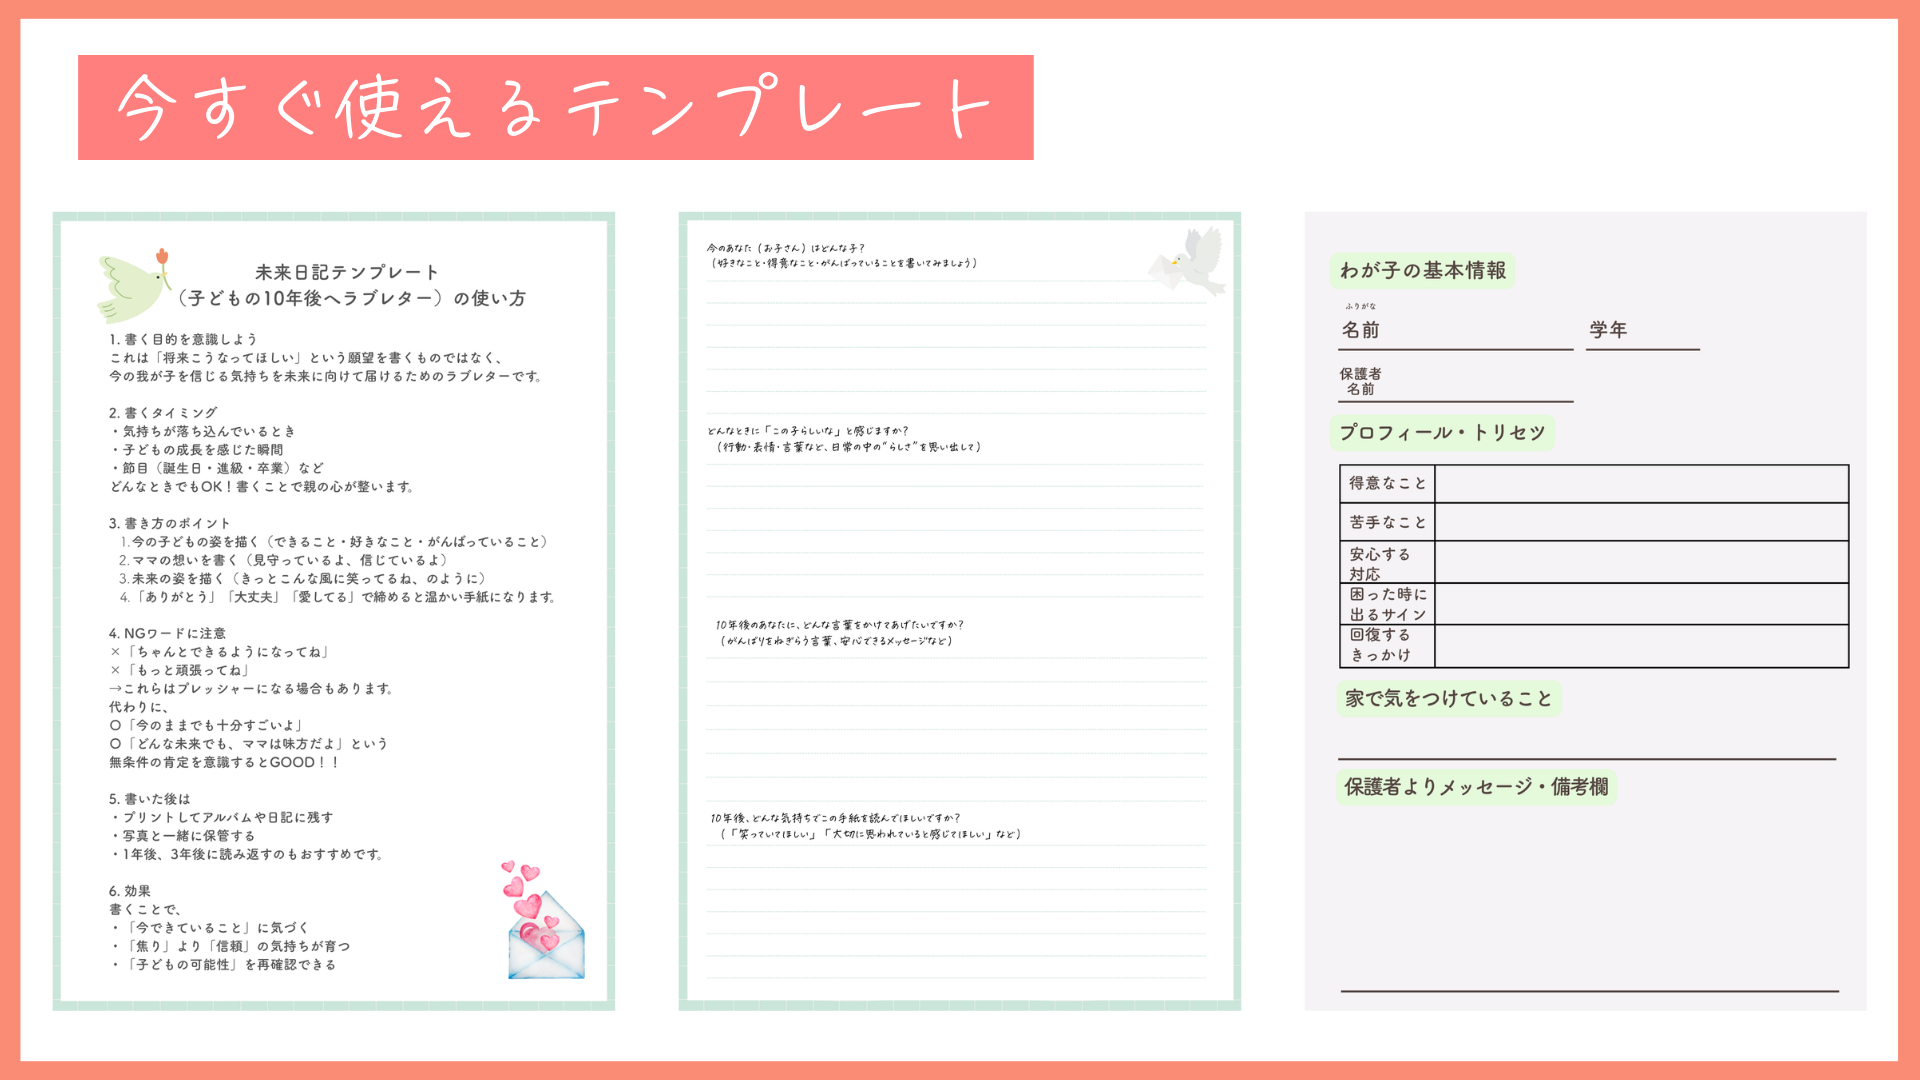 今すぐ使えるテンプレート
未来日記テンプレート
（子どもの10年後へラブレター）の使い方
1. 書く目的を意識しよう
これは「将来こうなってほしい」という願望を書くものではなく、
今の我が子を信じる気持ちを未来に向けて届けるためのラブレターです。
2. 書くタイミング
・気持ちが落ち込んでいるとき
・子どもの成長を感じた瞬間
・節目（誕生日・進級・卒業）など
どんなときでもOK！書くことで親の心が整います。
3. 書き方のポイント
1. 今の子どもの姿を描く（できること・好きなこと・がんばっていること）
2. ママの想いを書く（見守っているよ、信じているよ）
3. 未来の姿を描く（きっとこんな風に笑ってるね、のように）
4. 「ありがとう」「大丈夫」「愛してる」で締めると温かい手紙になります。
4. NGワードに注意
×「ちゃんとできるようになってね」
×「もっと頑張ってね」
→これらはプレッシャーになる場合もあります。
代わりに、
○「今のままでも十分すごいよ」
○「どんな未来でも、ママは味方だよ」という
無条件の肯定を意識するとGOOD！！
5. 書いた後は
・プリントしてアルバムや日記に残す
・写真と一緒に保管する
・1年後、3年後に読み返すのもおすすめです。
6. 効果
書くことで、
・「今できていること」に気づく
・「焦り」より「信頼」の気持ちが育つ
・「子どもの可能性」を再確認できる
今のあなた（お子さん）はどんな子？
（好きなこと・得意なこと・がんばっていることを書いてみましょう）
どんなときに「この子らしいな」と感じますか？
（行動・表情・言葉など、日常の中の“らしさ”を思い出して）
10年後のあなたに、どんな言葉をかけてあげたいですか？
（がんばりをねぎらう言葉、安心できるメッセージなど）
10年後、どんな気持ちでこの手紙を読んでほしいですか？
（「笑っていてほしい」「大切に思われていると感じてほしい」など）
わが子の基本情報
ふりがな
名前
学年
保護者
名前
プロフィール・トリセツ
得意なこと
苦手なこと
安心する
対応
困った時に
出るサイン
回復する
きっかけ
家で気をつけていること
保護者よりメッセージ・備考欄